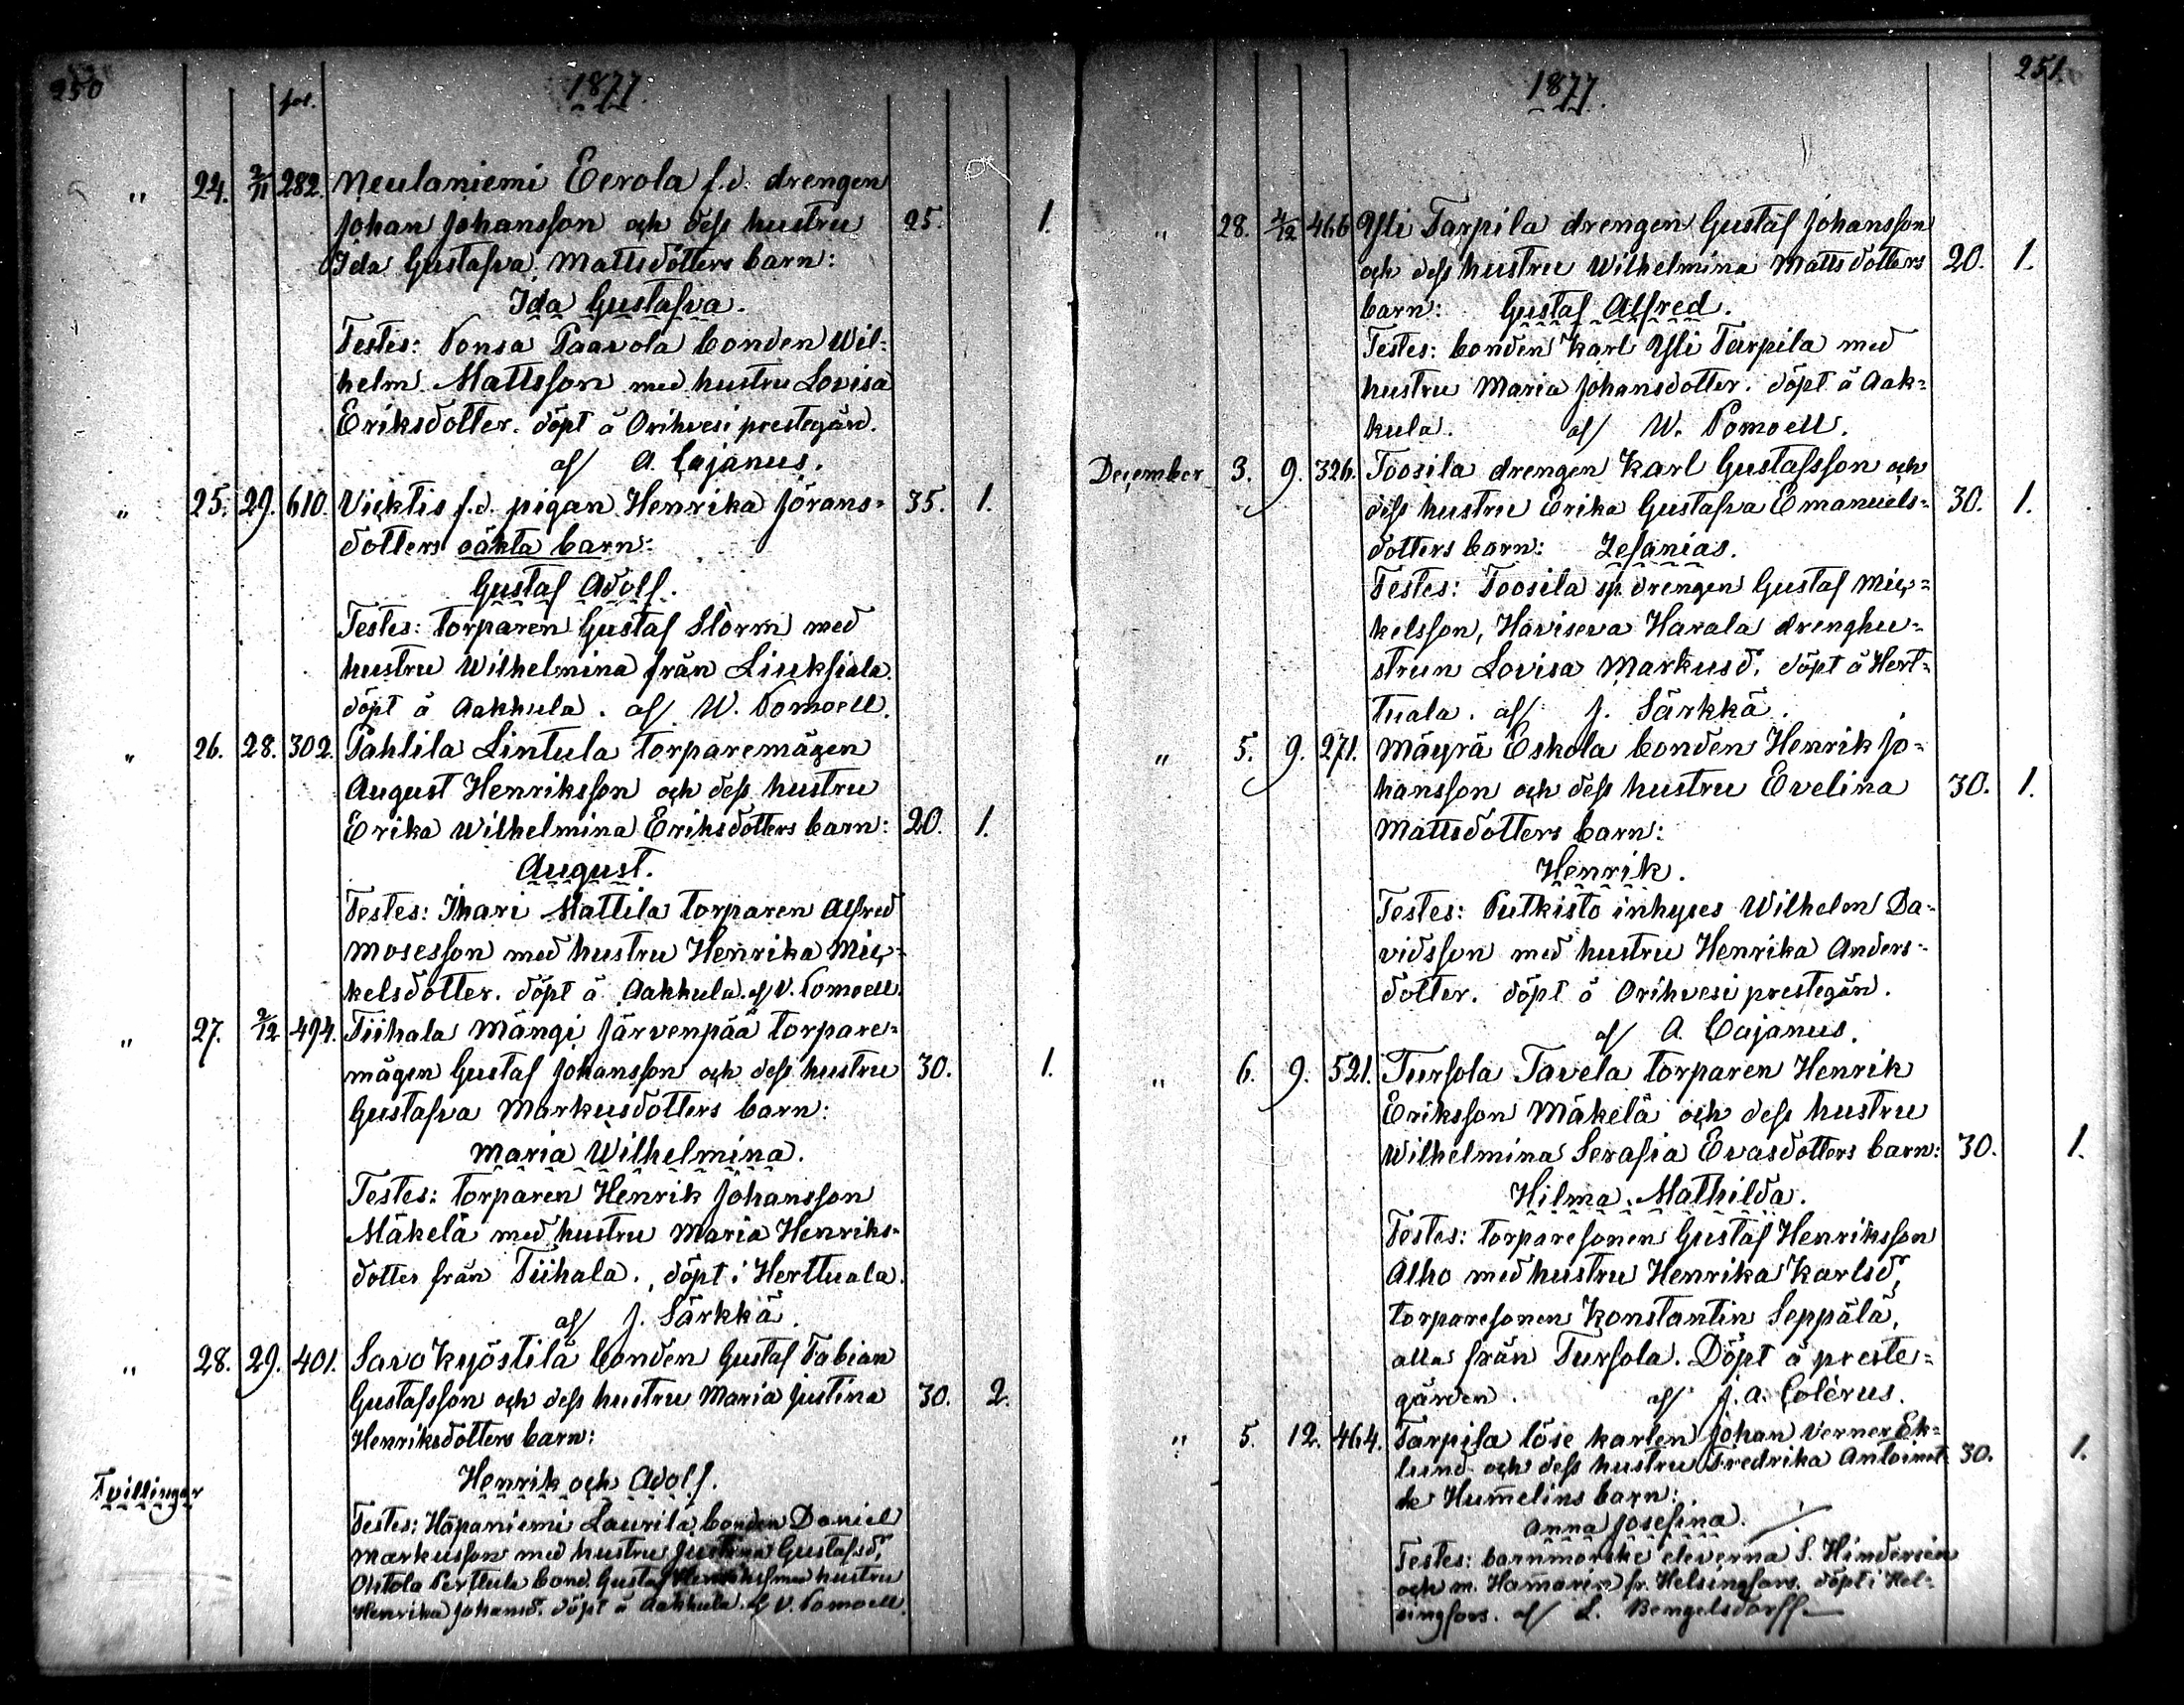 250
fol.
1877.
" 24. 2/11 282. Neulaniemi Eerola f.d. drengen
Johan Johansson och dess hustru 25. 1.
Ida Gustafva Mattsdotters barn:
Ida Gustafva.
Testes: Ponsa Paavola bonden Wil-
helm Mattsson med hustru Lovisa
Eriksdotter. döpt å Orihvesi prestegård.
af A. Cajanus.
" 25. 29. 610. Vicktis f.d. pigan Henrika Jörans- 35. 1.
dotters oäkta barn:
Gustaf Adolf.
Testes: torparen Gustaf Storm med
hustru Wilhelmina från Liuksiala.
döpt å Aakkula. af W. Pomoell.
" 26. 28. 302. Pahlila Lintula torparemågen
August Henriksson och dess hustru
Erika Wilhelmina Eriksdotters barn: 20. 1.
August.
Testes: Ihari Mattila torparen Alfred
Mosesson med hustru Henrika Mic-
kelsdotter. döpt å Aakkula. af W. Pomoell.
" 27. 2/12 494. Tiihala Mängi Järvenpää torpare-
mågen Gustaf Johansson och dess hustru 30. 1.
Gustafva Markusdotters barn:
Maria Wilhelmina.
Testes: torparen Henrik Johansson
Mäkelä med hustru Maria Henriks-
dotter från Tiihala. döpt i Herttuala.
af J. Särkkä.
" 28. 29. 401. Savo Kyöstilä bonden Gustaf Fabian
Gustafsson och dess hustru Maria Justina 30. 2.
Henriksdotters barn:
Henrik och Adolf.
Tvillingar
Testes: Häpäniemi Laurila bonden Daniel
Markusson med hustru Justina Gustafsd.
Ohtola Perttula bond. Gustaf med hustru
Henrika Johansd. döpt å Aakkula. af W. Pomoell.
251.
1877.
" 28. 2/12 466 Yli Tarpila drengen Gustaf Johansson
och dess hustru Wilhelmina Mattsdotters 20. 1.
barn: Gustaf Alfred.
Testes: bonden Karl Yli Tarpila med
hustru Maria Johansdotter. döpt å Aak-
kula. af W. Pomoell.
December 3. 9. 326. Toosila drengen Karl Gustafsson och
dess hustru Erika Gustafva Emanuels- 30. 1.
dotters barn: Zefanias.
Testes: Toosila sp. drengen Gustaf Mic-
kelsson, Haviseva Harala drenghu-
strun Lovisa Markusd. döpt å Hert-
tuala. af J. Särkkä.
" 5. 9. 271. Mäyrä Eskola bonden Henrik Jo-
hansson och dess hustru Evelina 30. 1.
Mattsdotters barn:
Henrik.
Testes: Putkisto inhyses Wilhelm Da-
vidsson med hustru Henrika Anders-
dotter. döpt å Orihvesi prestegård.
af A. Cajanus.
" 6. 9. 521. Tursola Tavela torparen Henrik
Eriksson Mäkelä och dess hustru
Wilhelmina Serafia Evasdotters barn: 30. 1.
Hilma Mathilda.
Testes: torparesonen Gustaf Henriksson
Alho med hustru Henrika Karlsd,
torparesonen Konstantin Seppälä,
alla från Tursola. Döpt å preste-
gården. af J. A. Colérus.
" 5. 12. 464. Tarpila löse karlen Johan Verner Ek-
lund och dess hustru Fredrika Antoinet- 30. 1.
te Hummelins barn:
Anna Josefina.
Testes: barnmorske eleverna S. Hindersin
och M. Hammarin fr. Helsingfors. döpt i Hel-
singfors. af L. Bengelsdorff